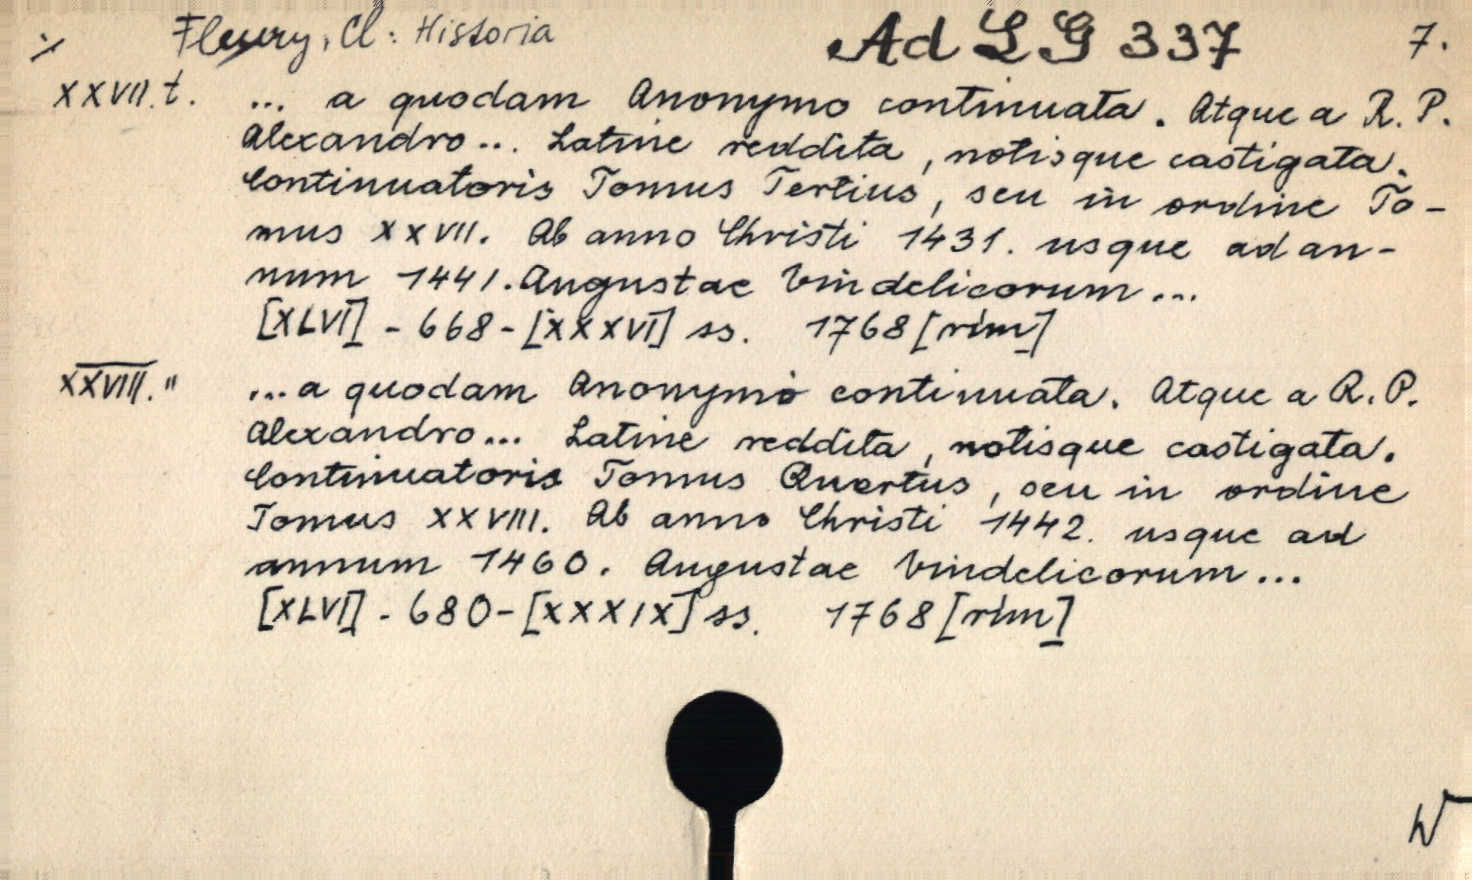 Fleury, Cl: Historia Ad LG 337 7.
XXVII. t. ... a quodam Anonymo continuata. Atque a R. P.
Alexandro... Latine reddita, notisque castigata.
Continuatoris Tomus Tertius, seu in ordine To-
mus XXVII. Ab anno Christi 1431. usque ad an-
num 1441. Augustae Vindelicorum...
[XLVI] - 668 - [XXXVI] ss. 1768 [rim]
XXVIII. " ... a quodam Anonymo continuata. Atque a R. P.
Alexandro... Latine reddita, notisque castigata.
Continuatoris Tomus Quartus, seu in ordine
Tomus XXVIII. Ab anno Christi 1442. usque ad
annum 1460. Augustae Vindelicorum...
[XLVI] - 680 - [XXXIX] ss. 1768 [rim]